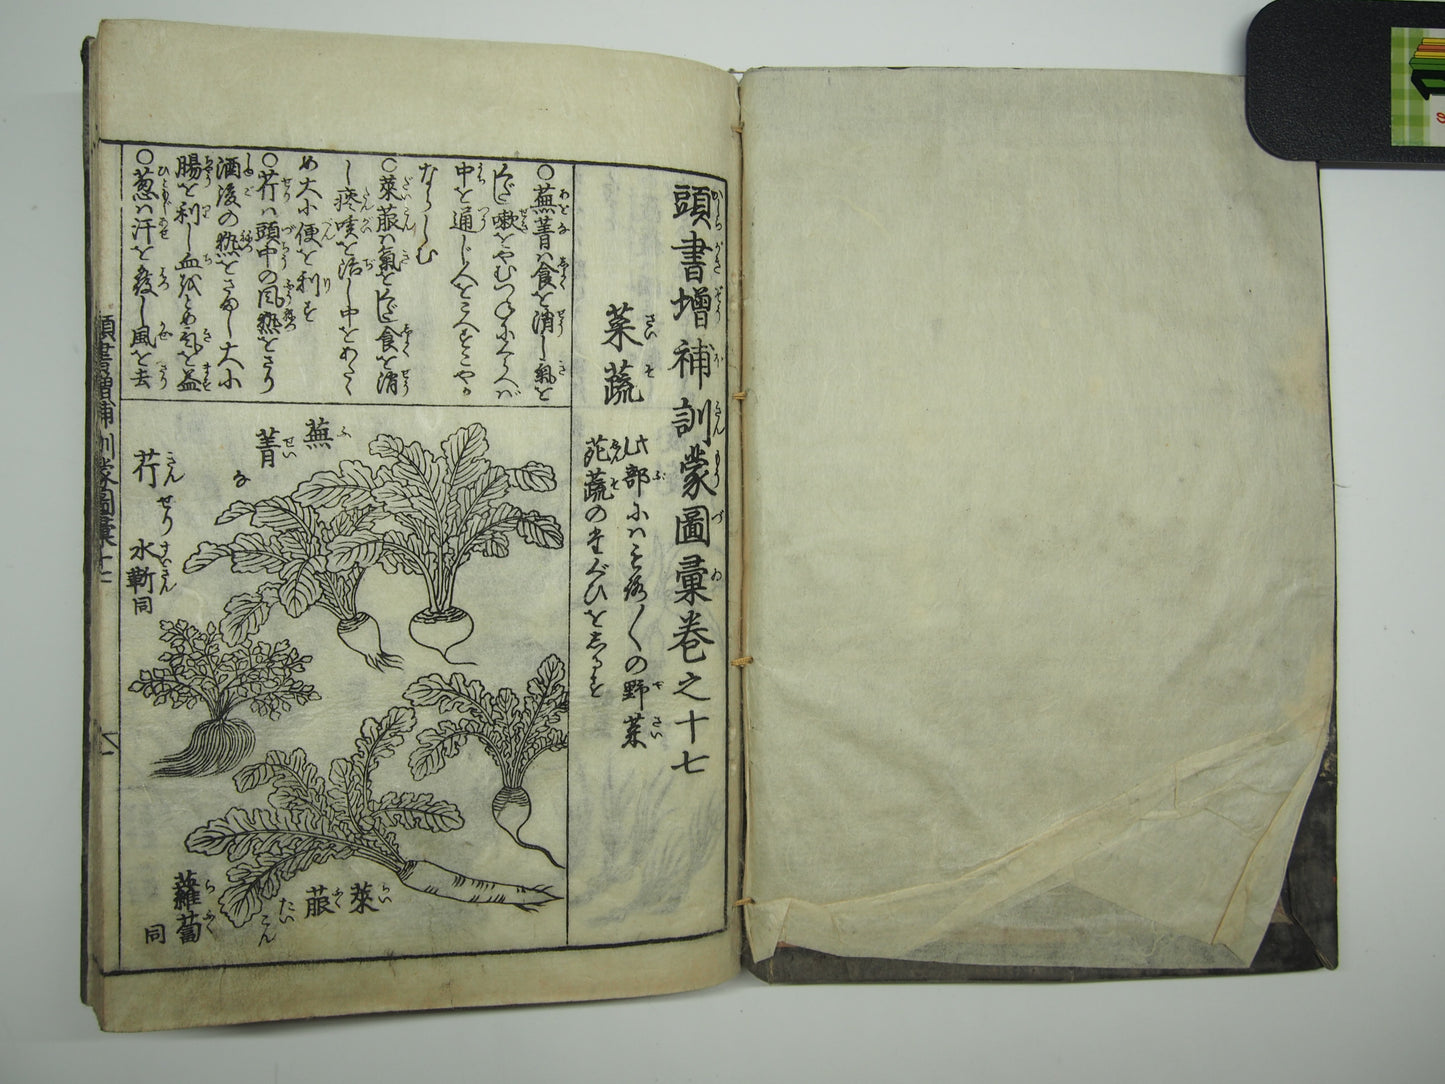 頭書增補訓蒙圖彙卷之十七
菜蔬
此部にハもろ〳〵の野菜
菀蔬のたぐひをしるす
○蕪菁ハ食を消し氣を
くだし嗽をやむつねにくらへば
中を通じ人をこえすこやか
ならしむ
○萊菔ハ氣をくだし食を消
し痰咳を治し中をあたゝ
め大小便を利す
○芹ハ頭中の風熱をさり
酒後の熱をさまし大小
腸を利し血をとめ氣を益
○葱ハ汗を發し風を去
蕪菁
な
芹
せり
水蘄同
萊菔
たいこん
蘿蔔
同
頭書增補訓蒙圖彙十七